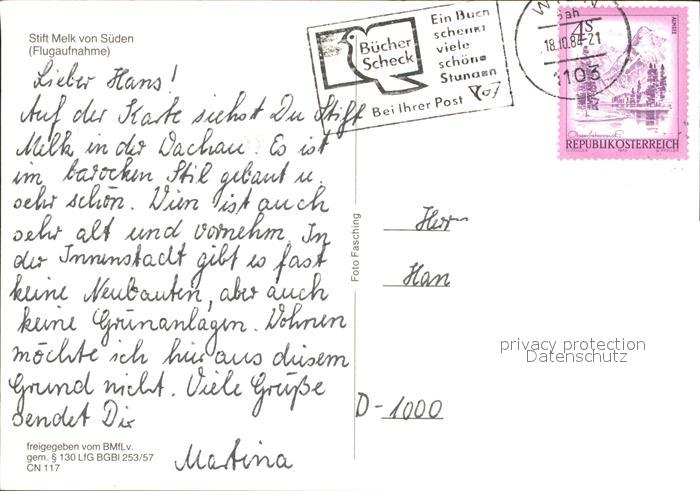 Stift Melk von Süden
(Flugaufnahme)
Lieber Hans!
Auf der Karte siehst Du Stift
Melk in der Wachau. Es ist
im barocken Stil gebaut u.
sehr schön. Wien ist auch
sehr alt und vornehm. In
der Innenstadt gibt es fast
keine Neubauten, aber auch
keine Grünanlagen. Wohnen
möchte ich hier aus diesem
Grund nicht. Viele Grüße
sendet Dir
Martina
freigegeben vom BMfLv.
gem. § 130 LfG BGBl 253/57
CN 117
Foto Fasching
Bücher
Scheck
Ein Buch
schenkt
viele
schöne
Stunden
Bei Ihrer Post
18.10.84-21
1103
4S
ALMSEE
REPUBLIK ÖSTERREICH
Herrn
Han
D-1000
privacy protection
Datenschutz